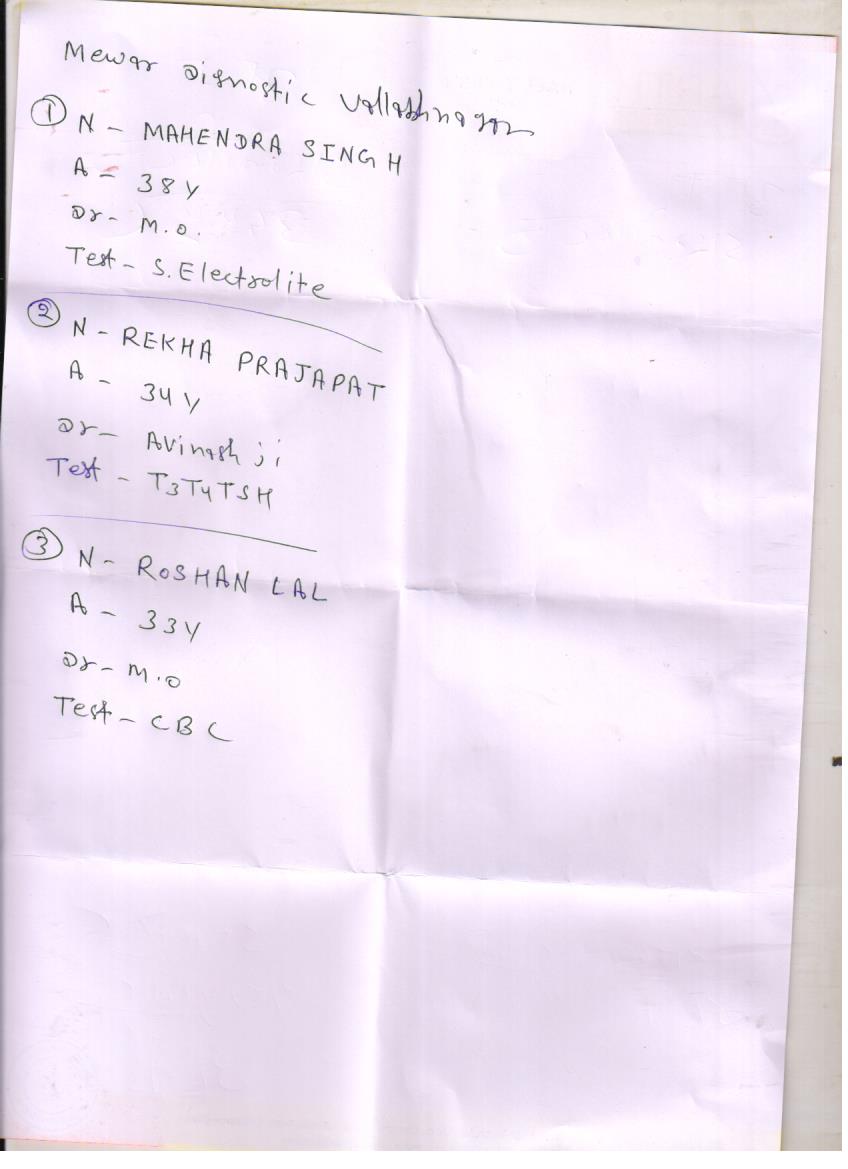 Mewar Disnostic Vallabhnagar
① N - MAHENDRA SINGH
A - 38 Y
Dr - M.O.
Test - S. Electrolite
② N - REKHA PRAJAPAT
A - 34 Y
Dr - Avinash ji
Test - T3T4TSH
③ N - ROSHAN LAL
A - 33Y
Dr - M.O
Test - CBC